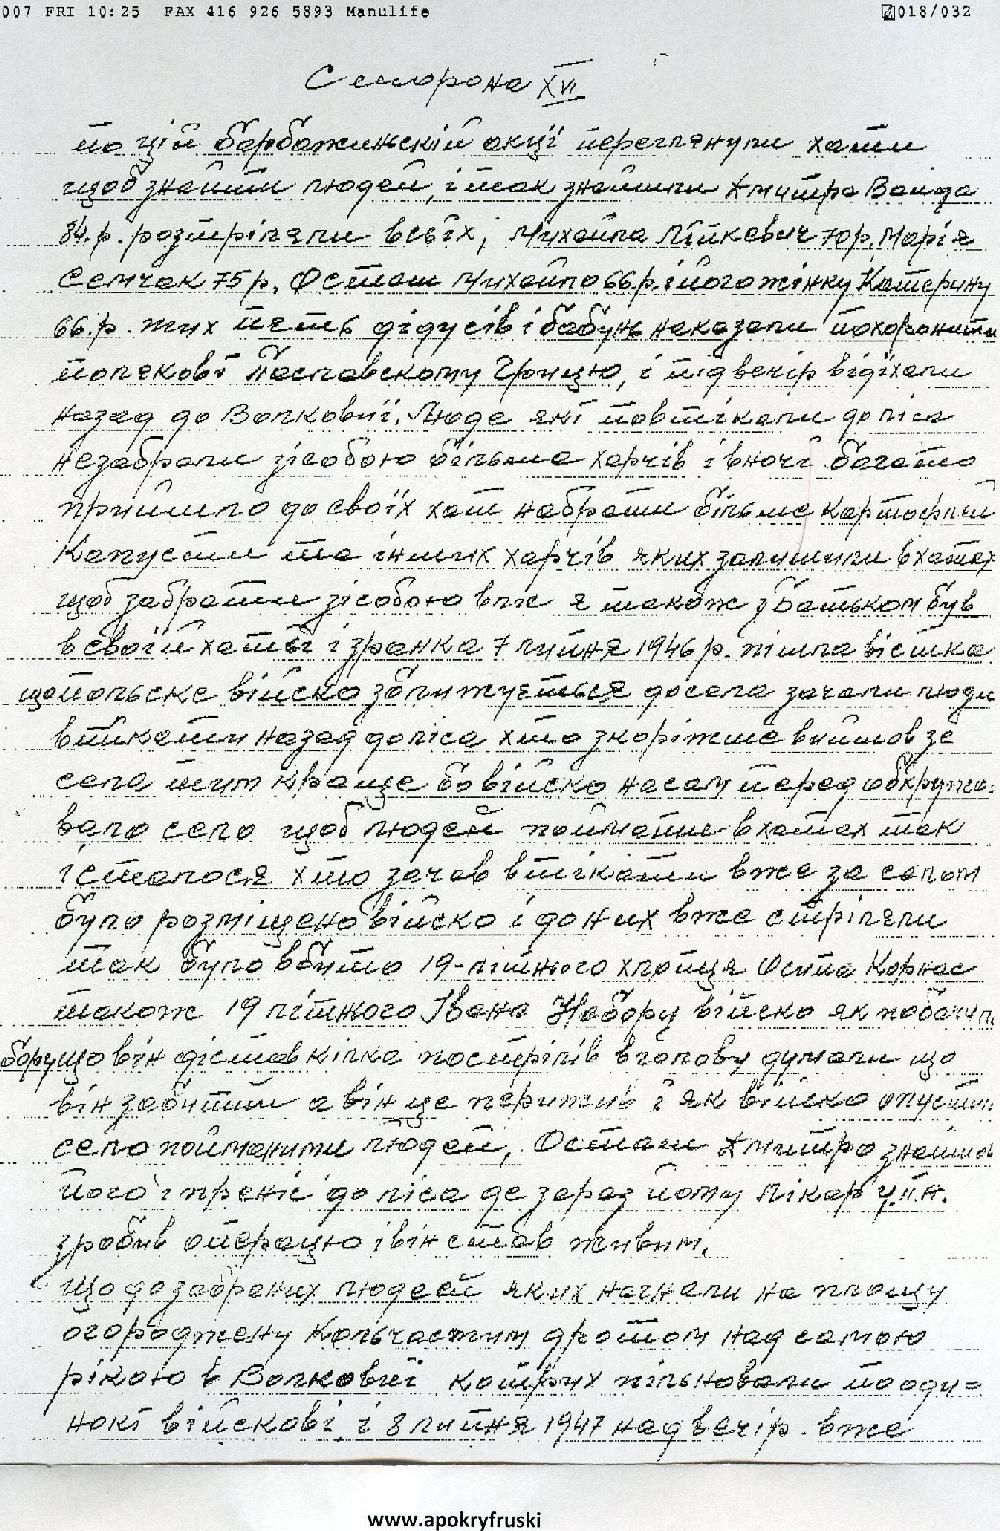 007 FRI 10:25 FAX 416 926 5893 Manulife 018/032
Сторона XVI
по цій барбажиньскій акції переглянули хати
щоб знайти людей, і так знайшли Дмитра Вайда
84.р. розтріляли всіх, Михайла Лішкевич 70р. Марія
Семчак 75р, Осташ Михайло 66р. і його жінку Катерину
66.р. тих пять дідусів і бабунь наказали похоронити
полякові Пославскому Грицю, і підвечір відїхали
назад до Волковиї. Люде які повтікали до ліса
незабрали зі собою більше харчів і вночі багато
прийшло до своїх хат набрати більше картофлі
Капусти та інших харчів яких залишили в хатах
щоб забрати зі собою в ліс я також з батьком був
в своїй хаті і зранка 7 липня 1946р. пішла вістка
що польске війско зближується до села зачали люди
втікати назад до ліса хто скоріжше вийшов зе
села тим краще бо війско насамперед обкружа-
вало село щоб людей поймати в хатах так
і сталося хто зачав втікати вже за селом
було розміщено війско і до них вже стріляли
так було вбито 19-літнього хлопця Осипа Корнас
також 19 літного Івана Набору війско як побачили
бору що він дістав кілка пострілів в голову думали що
він забитий а він ще пережив і як війско опустило
село пойманими людей, Осташ Дмитро знайшов
його і преніс до ліса де зараз йому лікар у.п.а.
зробив операцю і він став живим.
Що до забраних людей яких нагнали на площу
огороджену Кольчастим дротом над самою
рікою в Волковиї котрих пільновали пооди-
нокі війскові, і 8 липня 1947 надвечір. вже
www.apokryfruski